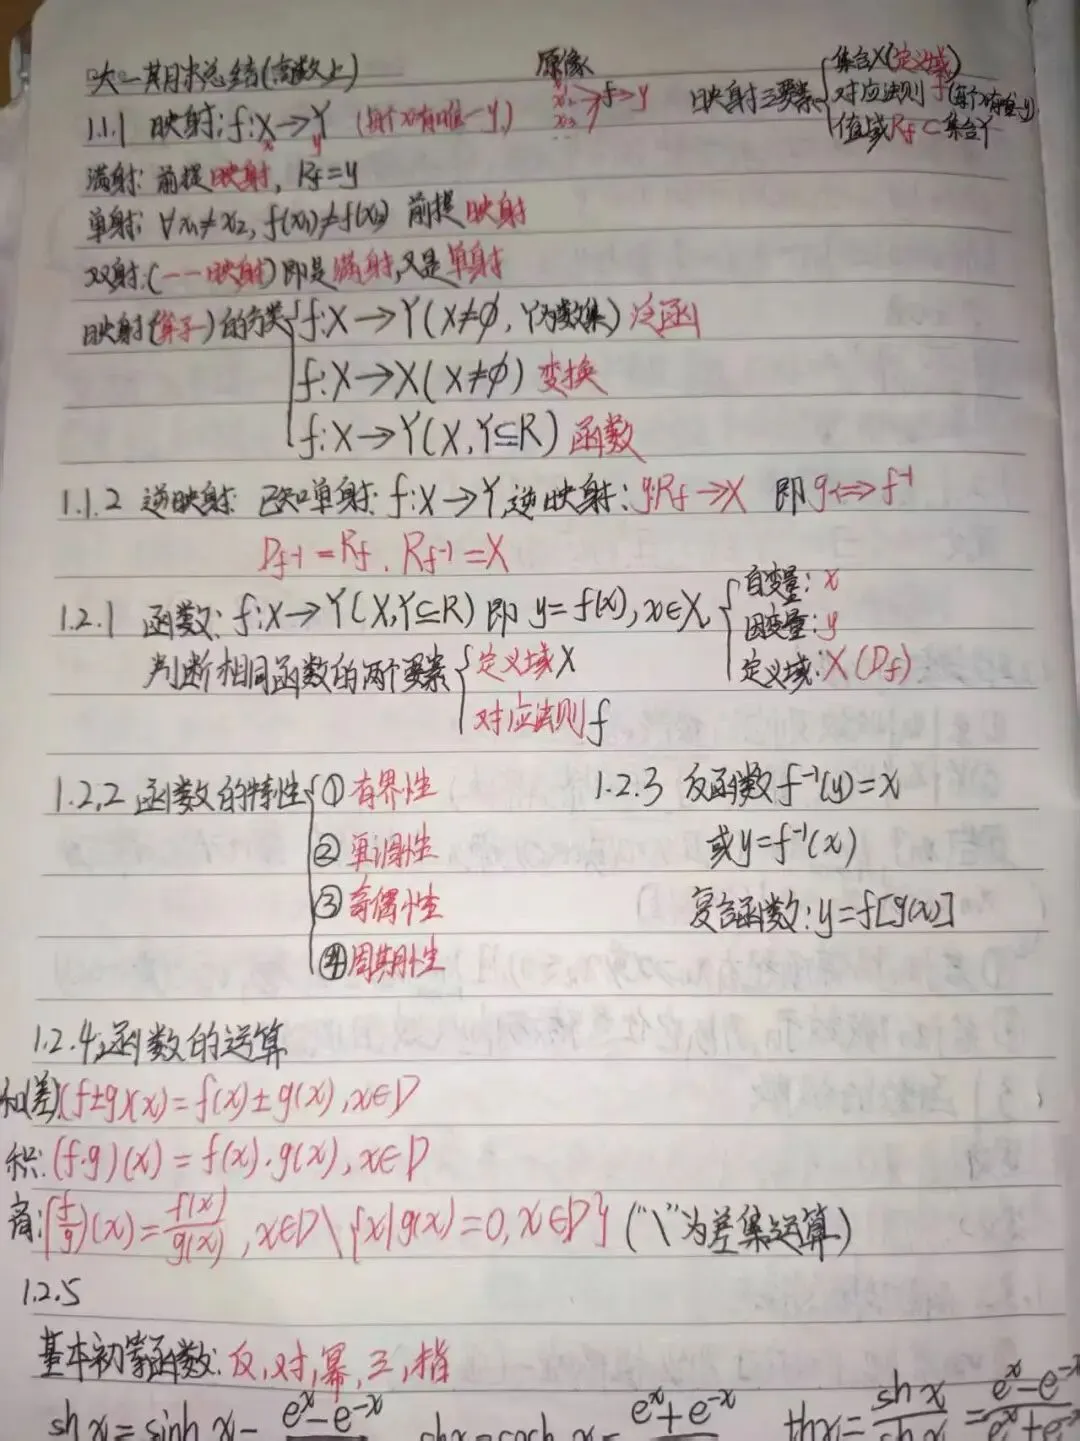 大一期末总结(高数上)
原像
映射三要素 集合X(定义域)
对应法则f(每个x有唯一y)
值域Rf⊂集合Y
1.1.1 映射: f:X→Y (每个x有唯一y)
x y
x₂ →f→y
x₃
...
满射: 前提映射, Rf=y
单射: ∀x₁≠x₂, f(x₁)≠f(x₂) 前提映射
双射:(一一映射)即是满射,又是单射
映射(算子)的分类 f:X→Y(X≠∅, Y为数集)泛函
f:X→X(X≠∅)变换
f:X→Y(X,Y⊆R)函数
1.1.2 逆映射: 已知单射: f:X→Y,逆映射: g:Rf→X 即g⇔f⁻¹
Df⁻¹=Rf, Rf⁻¹=X
1.2.1 函数: f:X→Y(X,Y⊆R)即 y=f(x), x∈X,
自变量: x
因变量: y
定义域: X(Df)
判断相同函数的两个要素 定义域X
对应法则f
1.2.2 函数的特性 ①有界性
②单调性
③奇偶性
④周期性
1.2.3 反函数f⁻¹(y)=x
或y=f⁻¹(x)
复合函数: y=f[g(x)]
1.2.4 函数的运算
和(差):(f±g)(x)=f(x)±g(x), x∈D
积: (f·g)(x)=f(x)·g(x), x∈D
商: (f/g)(x)=f(x)/g(x), x∈D\{x|g(x)=0, x∈D}("\"为差集运算)
1.2.5
基本初等函数: 反,对,幂,三,指
sh x=sinh x= eˣ−e⁻ˣ
chx=cosh x= eˣ+e⁻ˣ
thx= sh x/ch x = eˣ−e⁻ˣ/eˣ+e⁻ˣ